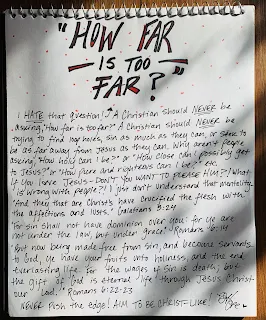 "HOW FAR
IS TOO
FAR?"
I HATE that question! A Christian should NEVER be
asking, "How far is too far?" A Christian should NEVER be
trying to find loop holes, sin as much as they can, or seek to
be as far away from Jesus as they can. Why aren't people
asking, "How holy can I be?" or "How close can I possibly get
to Jesus?" or "How pure and righteous can I be?" etc.
If you love Jesus - DON'T YOU WANT TO PLEASE HIM?! What
is wrong with people?! I just don't understand that mentality.
"And they that are Christ's have crucified the flesh with
the affections and lusts." Galatians 5:24
"For sin shall not have dominion over you: for ye are
not under the law, but under grace." Romans 6:14
"But now being made free from sin, and become servants
to God, ye have your fruit unto holiness, and the end
everlasting life. For the wages of sin is death; but
the gift of God is eternal life through Jesus Christ
our Lord." Romans 6:22-23
NEVER push the edge! AIM TO BE CHRIST-LIKE!